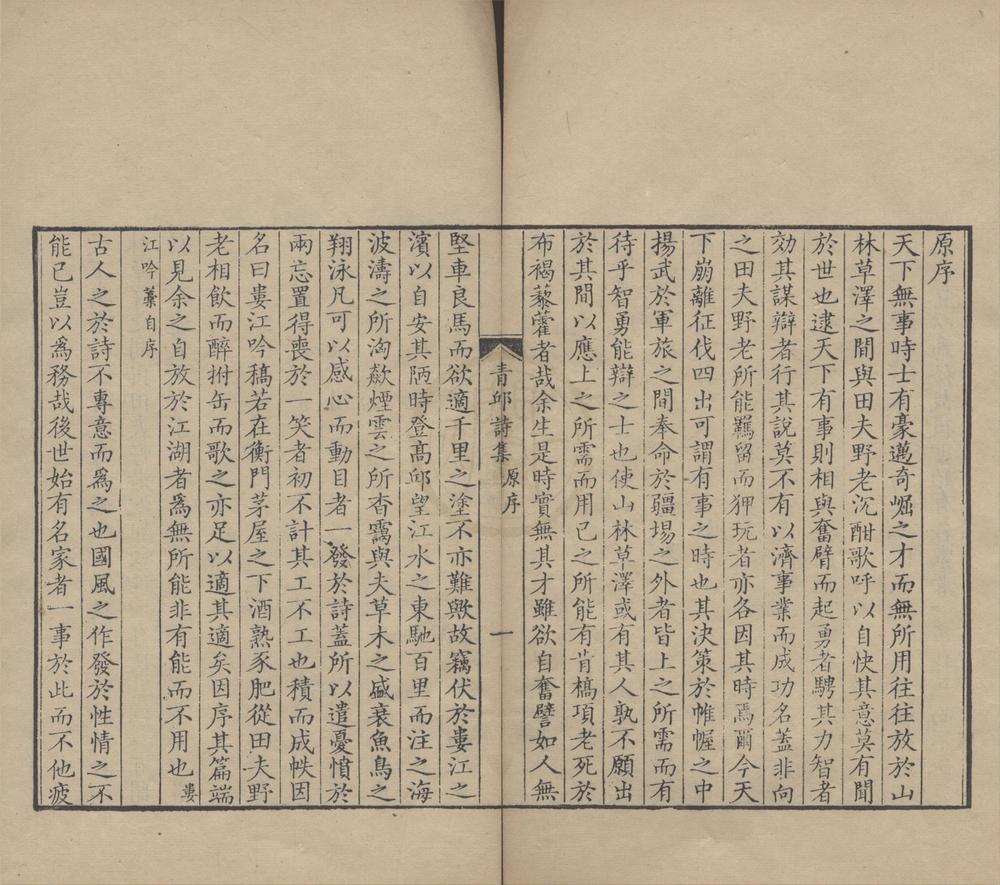 原序
天下無事時士有豪邁奇崛之才而無所用往往放於山
林草澤之間與田夫野老沉酣歌呼以自快其意莫有聞
於世也逮天下有事則相與奮臂而起勇者騁其力智者
効其謀辯者行其說莫不有以濟事業而成功名蓋非向
之田夫野老所能羈留而狎玩者亦各因其時焉爾今天
下崩離征伐四出可謂有事之時也其決策於帷幄之中
揚武於軍旅之間奉命於疆場之外者皆上之所需而有
待乎智勇能辯之士也使山林草澤或有其人孰不願出
於其間以應上之所需而用已之所能有肯槁項老死於
布褐藜藿者哉余生是時實無其才雖欲自奮譬如人無
青邱詩集 原序 一
堅車良馬而欲適千里之塗不亦難歟故竊伏於婁江之
濱以自安其陋時登高邱望江水之東馳百里而注之海
波濤之所洶歘煙雲之所杳靄與夫草木之盛衰魚鳥之
翔泳凡可以感心而動目者一發於詩蓋所以遣憂憤於
兩忘置得喪於一笑者初不計其工不工也積而成帙因
名曰婁江吟稿若在衡門茅屋之下酒熟豕肥從田夫野
老相飲而醉拊缶而歌之亦足以適其適矣因序其篇端
以見余之自放於江湖者為無所能非有能而不用也婁
江吟藁自序
古人之於詩不專意而為之也國風之作發於性情之不
能已豈以為務哉後世始有名家者一事於此而不他疲